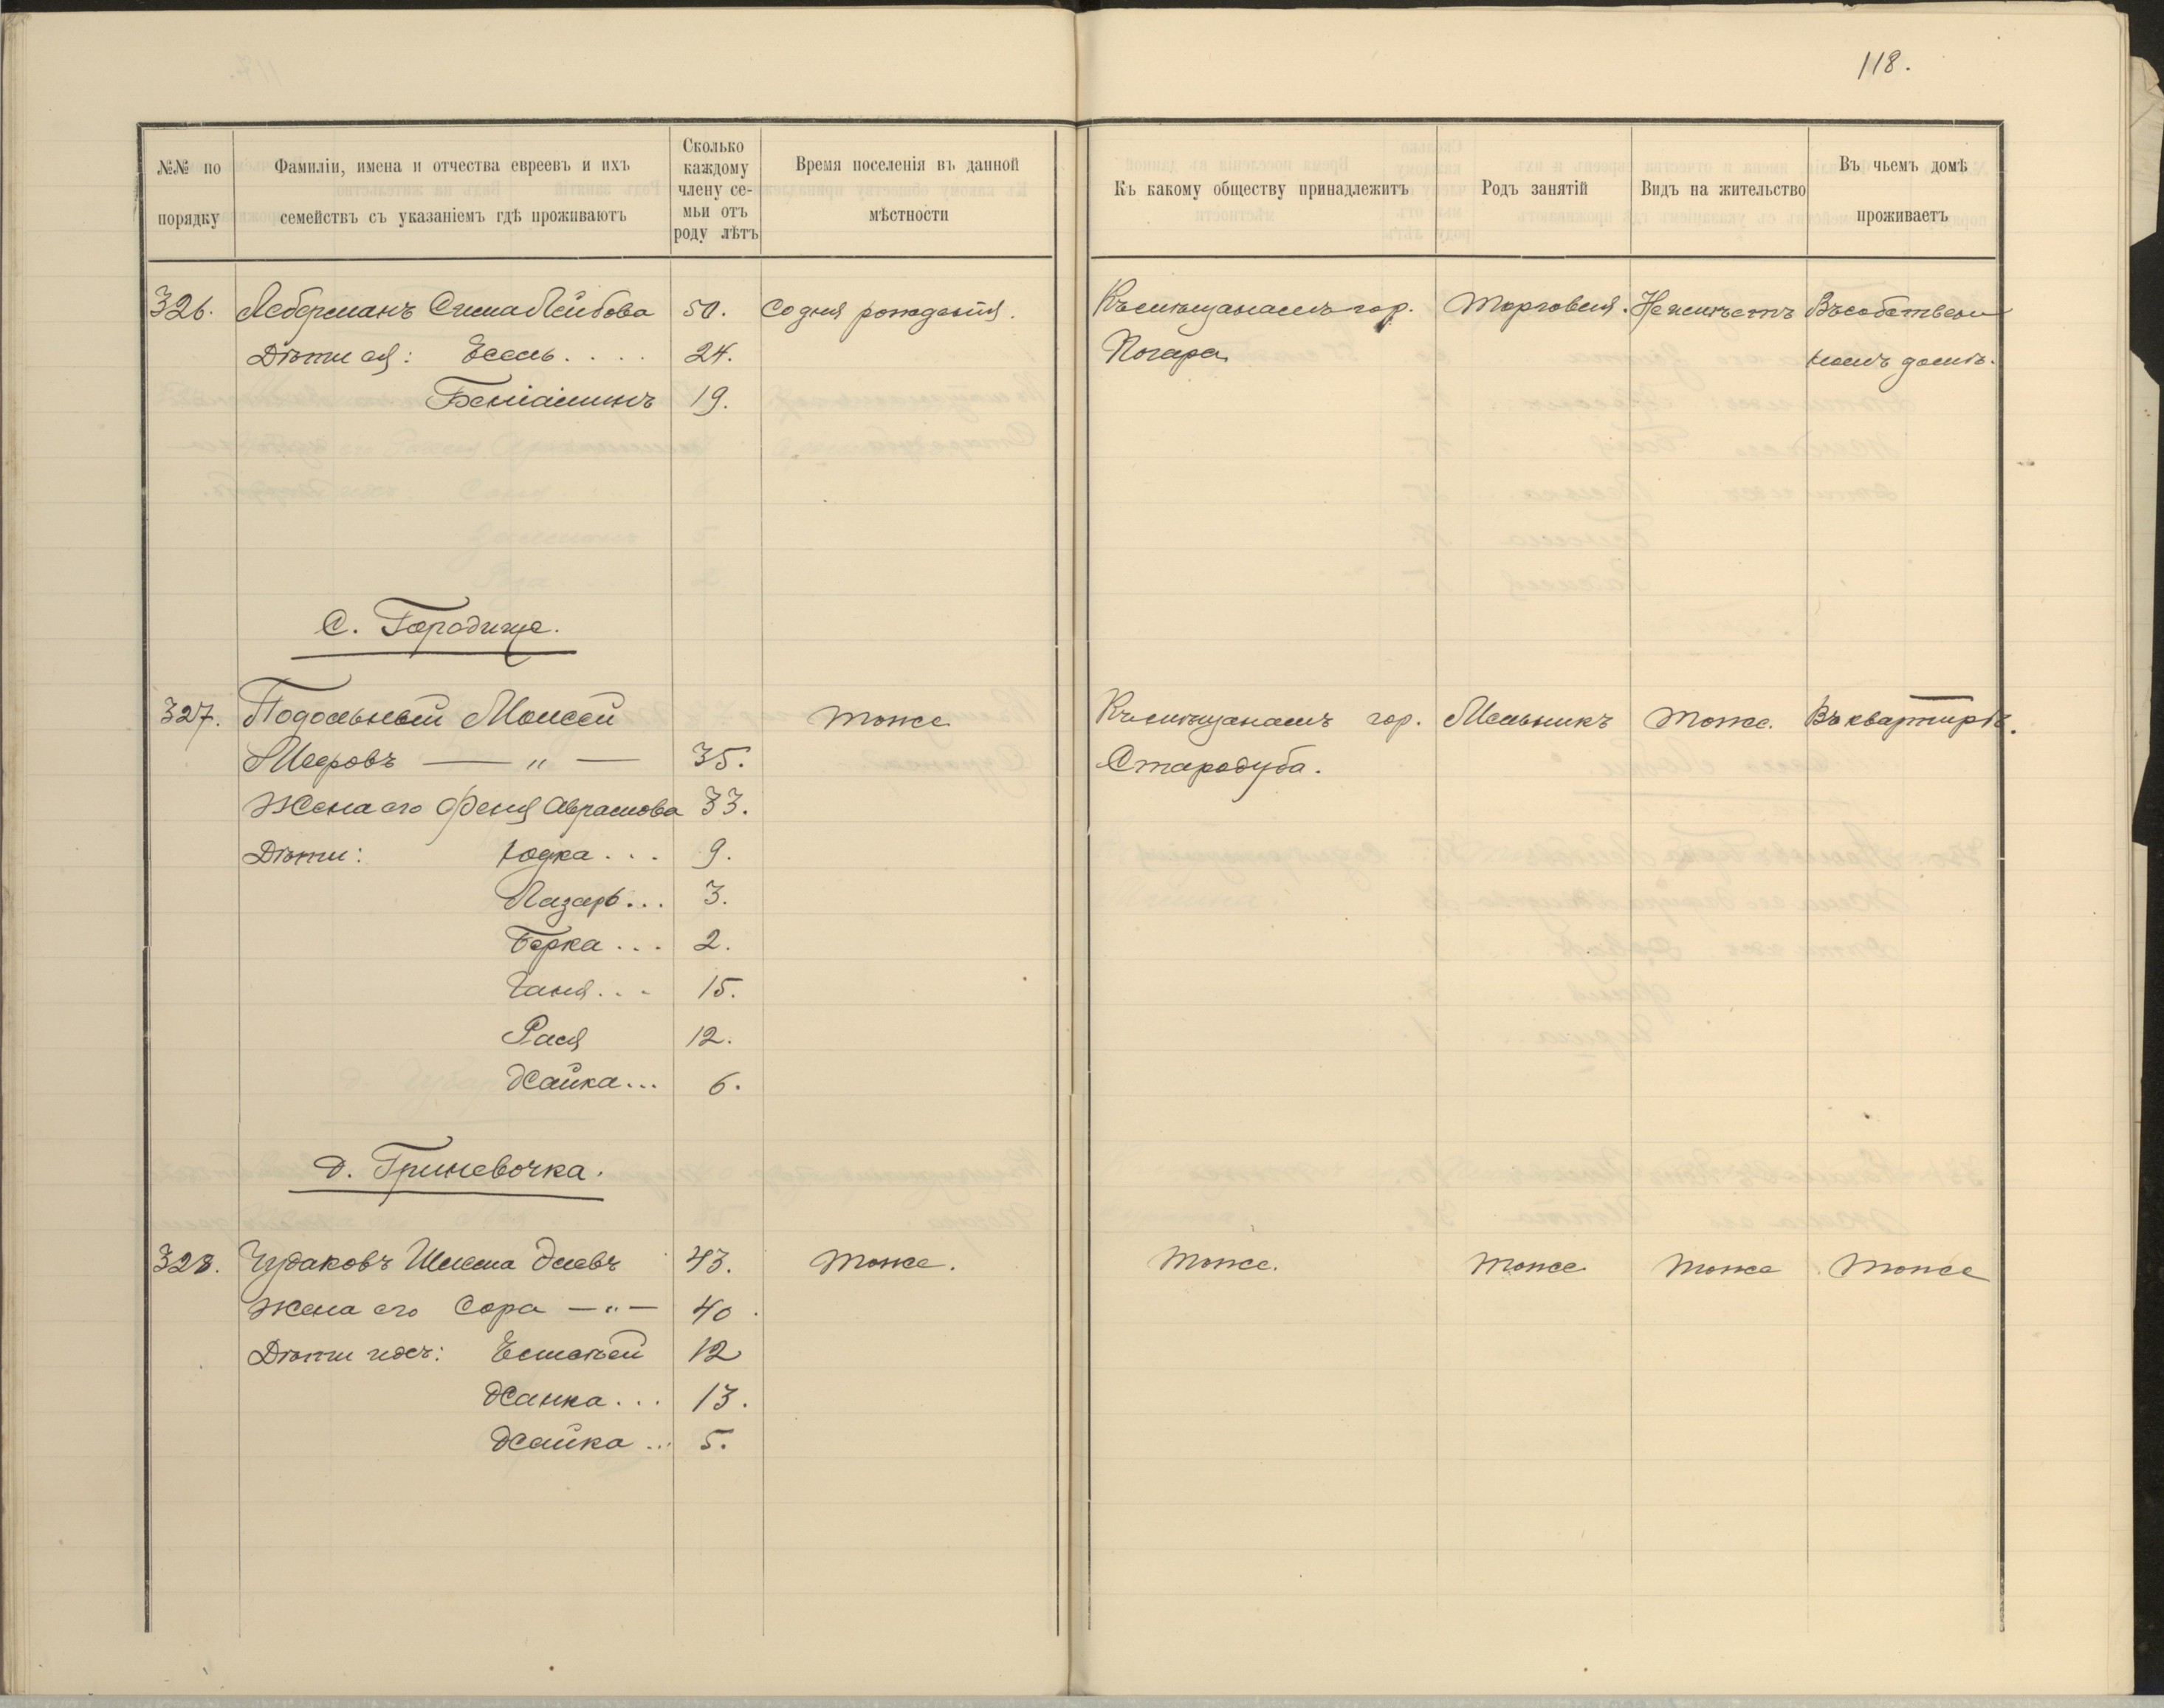 118.
№№ по порядку
Фамиліи, имена и отчества евреевъ и ихъ семействъ съ указаніемъ гдѣ проживаютъ
Сколько каждому члену се-мьи отъ роду лѣтъ
Время поселенія въ данной мѣстности
Къ какому обществу принадлежитъ
Родъ занятій
Видъ на жительство
Въ чьемъ домѣ проживаетъ
326. Леберманъ Сима Лейбова 50. Со дня рожденія. Къ мѣщанамъ гор. Торговля. Не имѣетъ Въ собствен
Дѣти ея: Есель.... 24. Погара номъ домѣ.
Беніаминъ 19.
С. Городище.
327. Подольный Моисей тоже Къ мѣщанамъ гор. Мельникъ тоже. Въ квартирѣ.
Мееровъ — „ — 35. Стародуба.
Жена его Феня Абрамова 33.
Дѣти: Юдка... 9.
Лазарь... 3.
Берка... 2.
Ганя... 15.
Рася 12.
Хайка... 6.
д. Гриневочка.
328. Чудаковъ Шлема 43. тоже. тоже. тоже тоже тоже
Жена его Сора — „ — 40.
Дѣти ихъ: 12
Ханка... 13.
Хайка... 5.